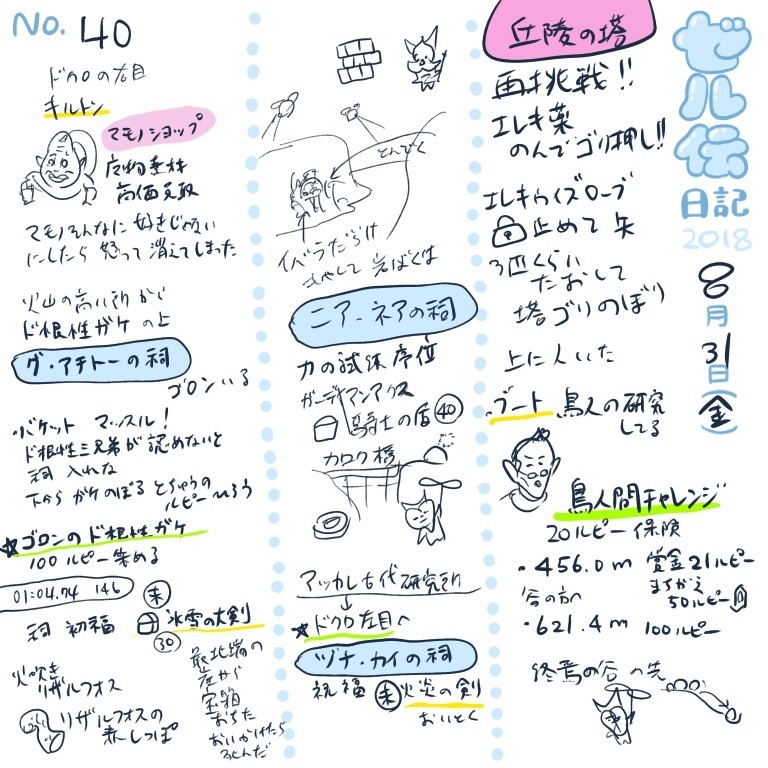 No. 40
ドクロの左目
キルトン
マモノショップ
魔物素材
高価買取
マモノそんなに好きじゃない
にしたら 怒って 消えてしまった
火山の高い所から
ド根性ガケ の上
グ・アチトーの祠
ゴロン いる
バケット マッスル!
ド根性三兄弟が 認めないと
祠 入れな
下から ガケのぼる とちゅうの
ルピー ひろう
★ゴロンのド根性ガケ
100ルピー 集める
01:04.74 146
祠 祝福
氷雪の大剣
30
火吹き
リザルフォス
リザルフォスの
赤しっぽ
最北端の
岸から
宝箱
おちた
おいかけたら
しんだ
とんでく
イバラだらけ
もやして 岩ばくは
ニア・ネアの祠
力の試練 序位
ガーディアンアクス
騎士の盾 40
カロク橋
アッカレ古代研究所
↓
★ドクロ左目へ
ヅナ・カイの祠
祝福 火炎の剣
おいとく
丘陵の塔
再挑戦!!
エレキ薬
のんで ゴリ押し!!
エレキウィズローブ
止めて 矢
3匹くらい
たおして
塔ゴリのぼり
上に人いた
ブート 鳥人の研究
してる
鳥人間チャレンジ
20ルピー 保険
・456.0m 賞金21ルピー
谷の方へ
まちがえ
50ルピー
・621.4m 100ルピー
終焉の谷の先
ゼル伝
日記
2018
8
月
31
日
(金)